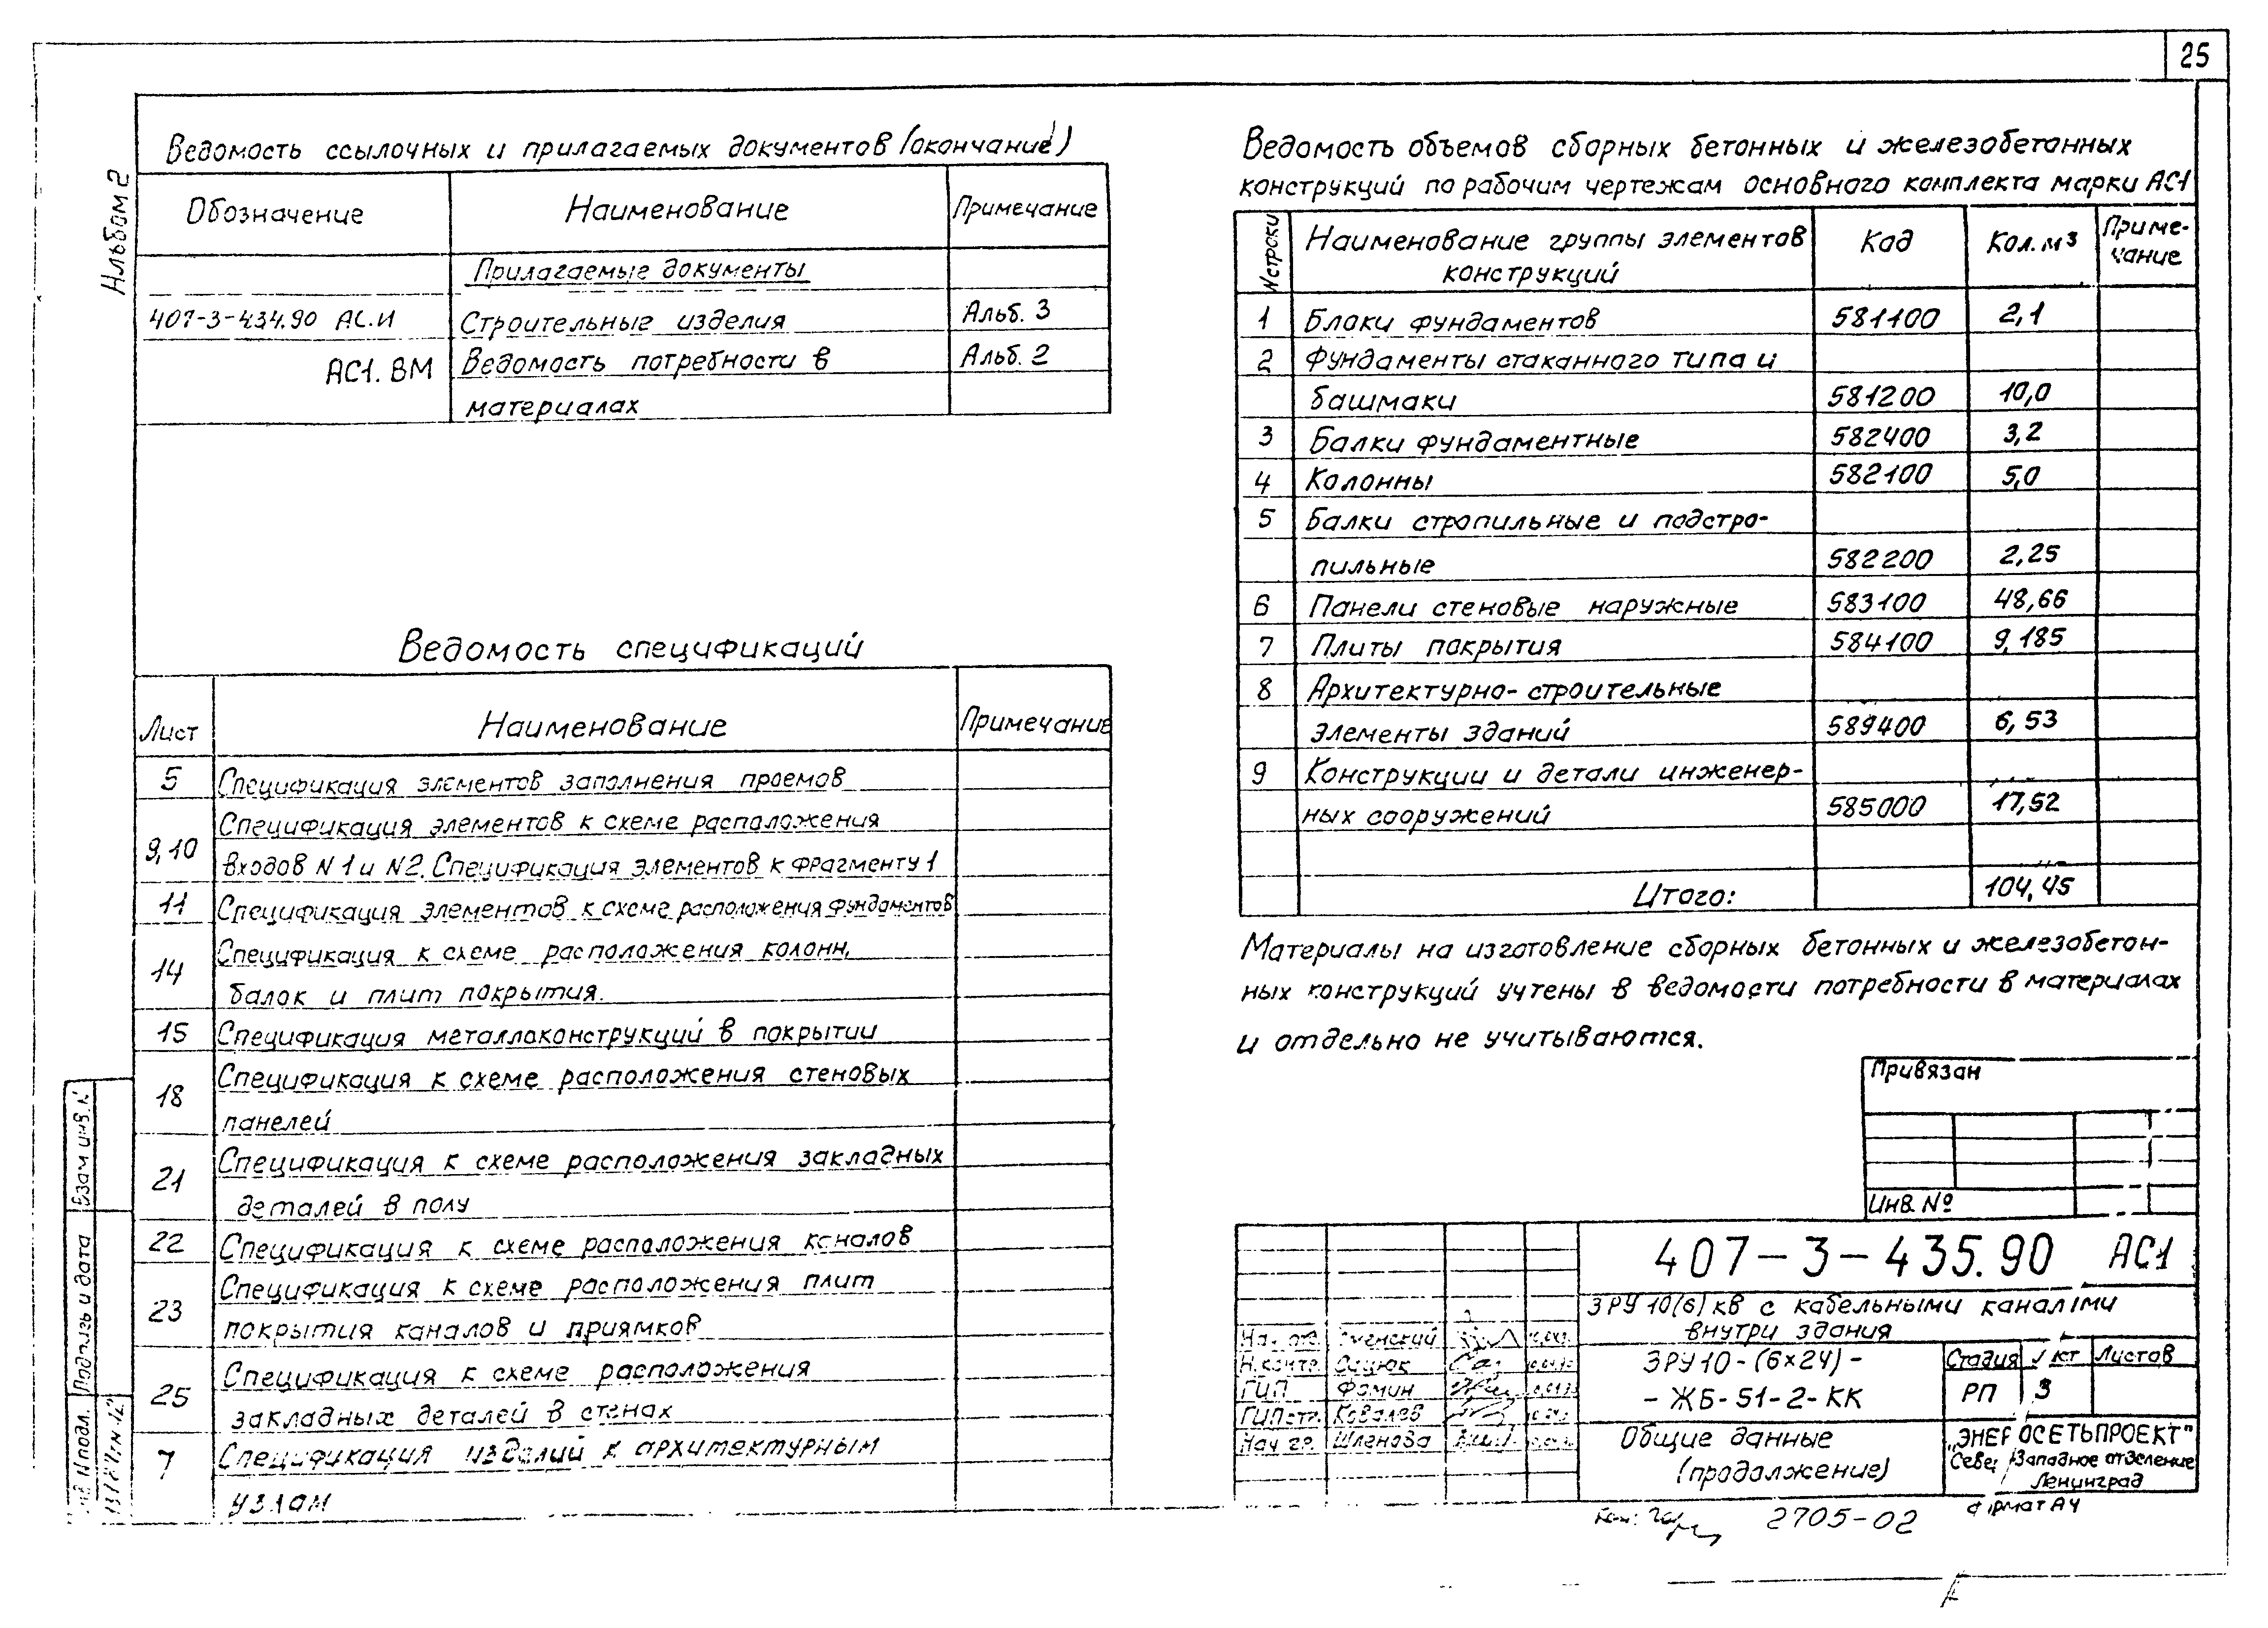 25
Альбом 2
Ведомость ссылочных и прилагаемых документов (окончание)
Обозначение Наименование Примечание
Прилагаемые документы
407-3-434.90 АС.И Строительные изделия Альб. 3
АС1.ВМ Ведомость потребности в Альб. 2
материалах
Ведомость спецификаций
Лист Наименование Примечание
5 Спецификация элементов заполнения проемов
Спецификация элементов к схеме расположения
9,10 входов N1 и N2. Спецификация элементов к фрагменту 1
11 Спецификация элементов к схеме расположения фундаментов
14 Спецификация к схеме расположения колонн,
балок и плит покрытия.
15 Спецификация металлоконструкций в покрытии
18 Спецификация к схеме расположения стеновых
панелей
21 Спецификация к схеме расположения закладных
деталей в полу
22 Спецификация к схеме расположения каналов
23 Спецификация к схеме расположения плит
покрытия каналов и приямков
25 Спецификация к схеме расположения
закладных деталей в стенах
7 Спецификация изделий к архитектурным
узлам
Ведомость объемов сборных бетонных и железобетонных
конструкций по рабочим чертежам основного комплекта марки АС1
N строки Наименование группы элементов Код Кол. м3 Приме-
конструкций чание
1 Блоки фундаментов 581100 2,1
2 Фундаменты стаканного типа и
башмаки 581200 10,0
3 Балки фундаментные 582400 3,2
4 Колонны 582100 5,0
5 Балки стропильные и подстро-
пильные 582200 2,25
6 Панели стеновые наружные 583100 48,66
7 Плиты покрытия 584100 9,185
8 Архитектурно-строительные
элементы зданий 589400 6,53
9 Конструкции и детали инженер-
ных сооружений 585000 17,52
Итого: 104,45
Материалы на изготовление сборных бетонных и железобетон-
ных конструкций учтены в ведомости потребности в материалах
и отдельно не учитываются.
Привязан
Инв. №
407-3-435.90 АС1
ЗРУ 10(6) кв с кабельными каналами
внутри здания
Н.контр. Сацюк
ГИП Фомин
ГИП стр. Ковалев
Нач гр. Шленова
ЗРУ10-(6х24)-
-ЖБ-51-2-КК
Стадия Лист Листов
РП 3
Общие данные
(продолжение)
„ЭНЕРГОСЕТЬПРОЕКТ"
Северо-Западное отделение
Ленинград
2705-02
Формат А4
Взам инв. N
Подпись и дата
Инв N подл.